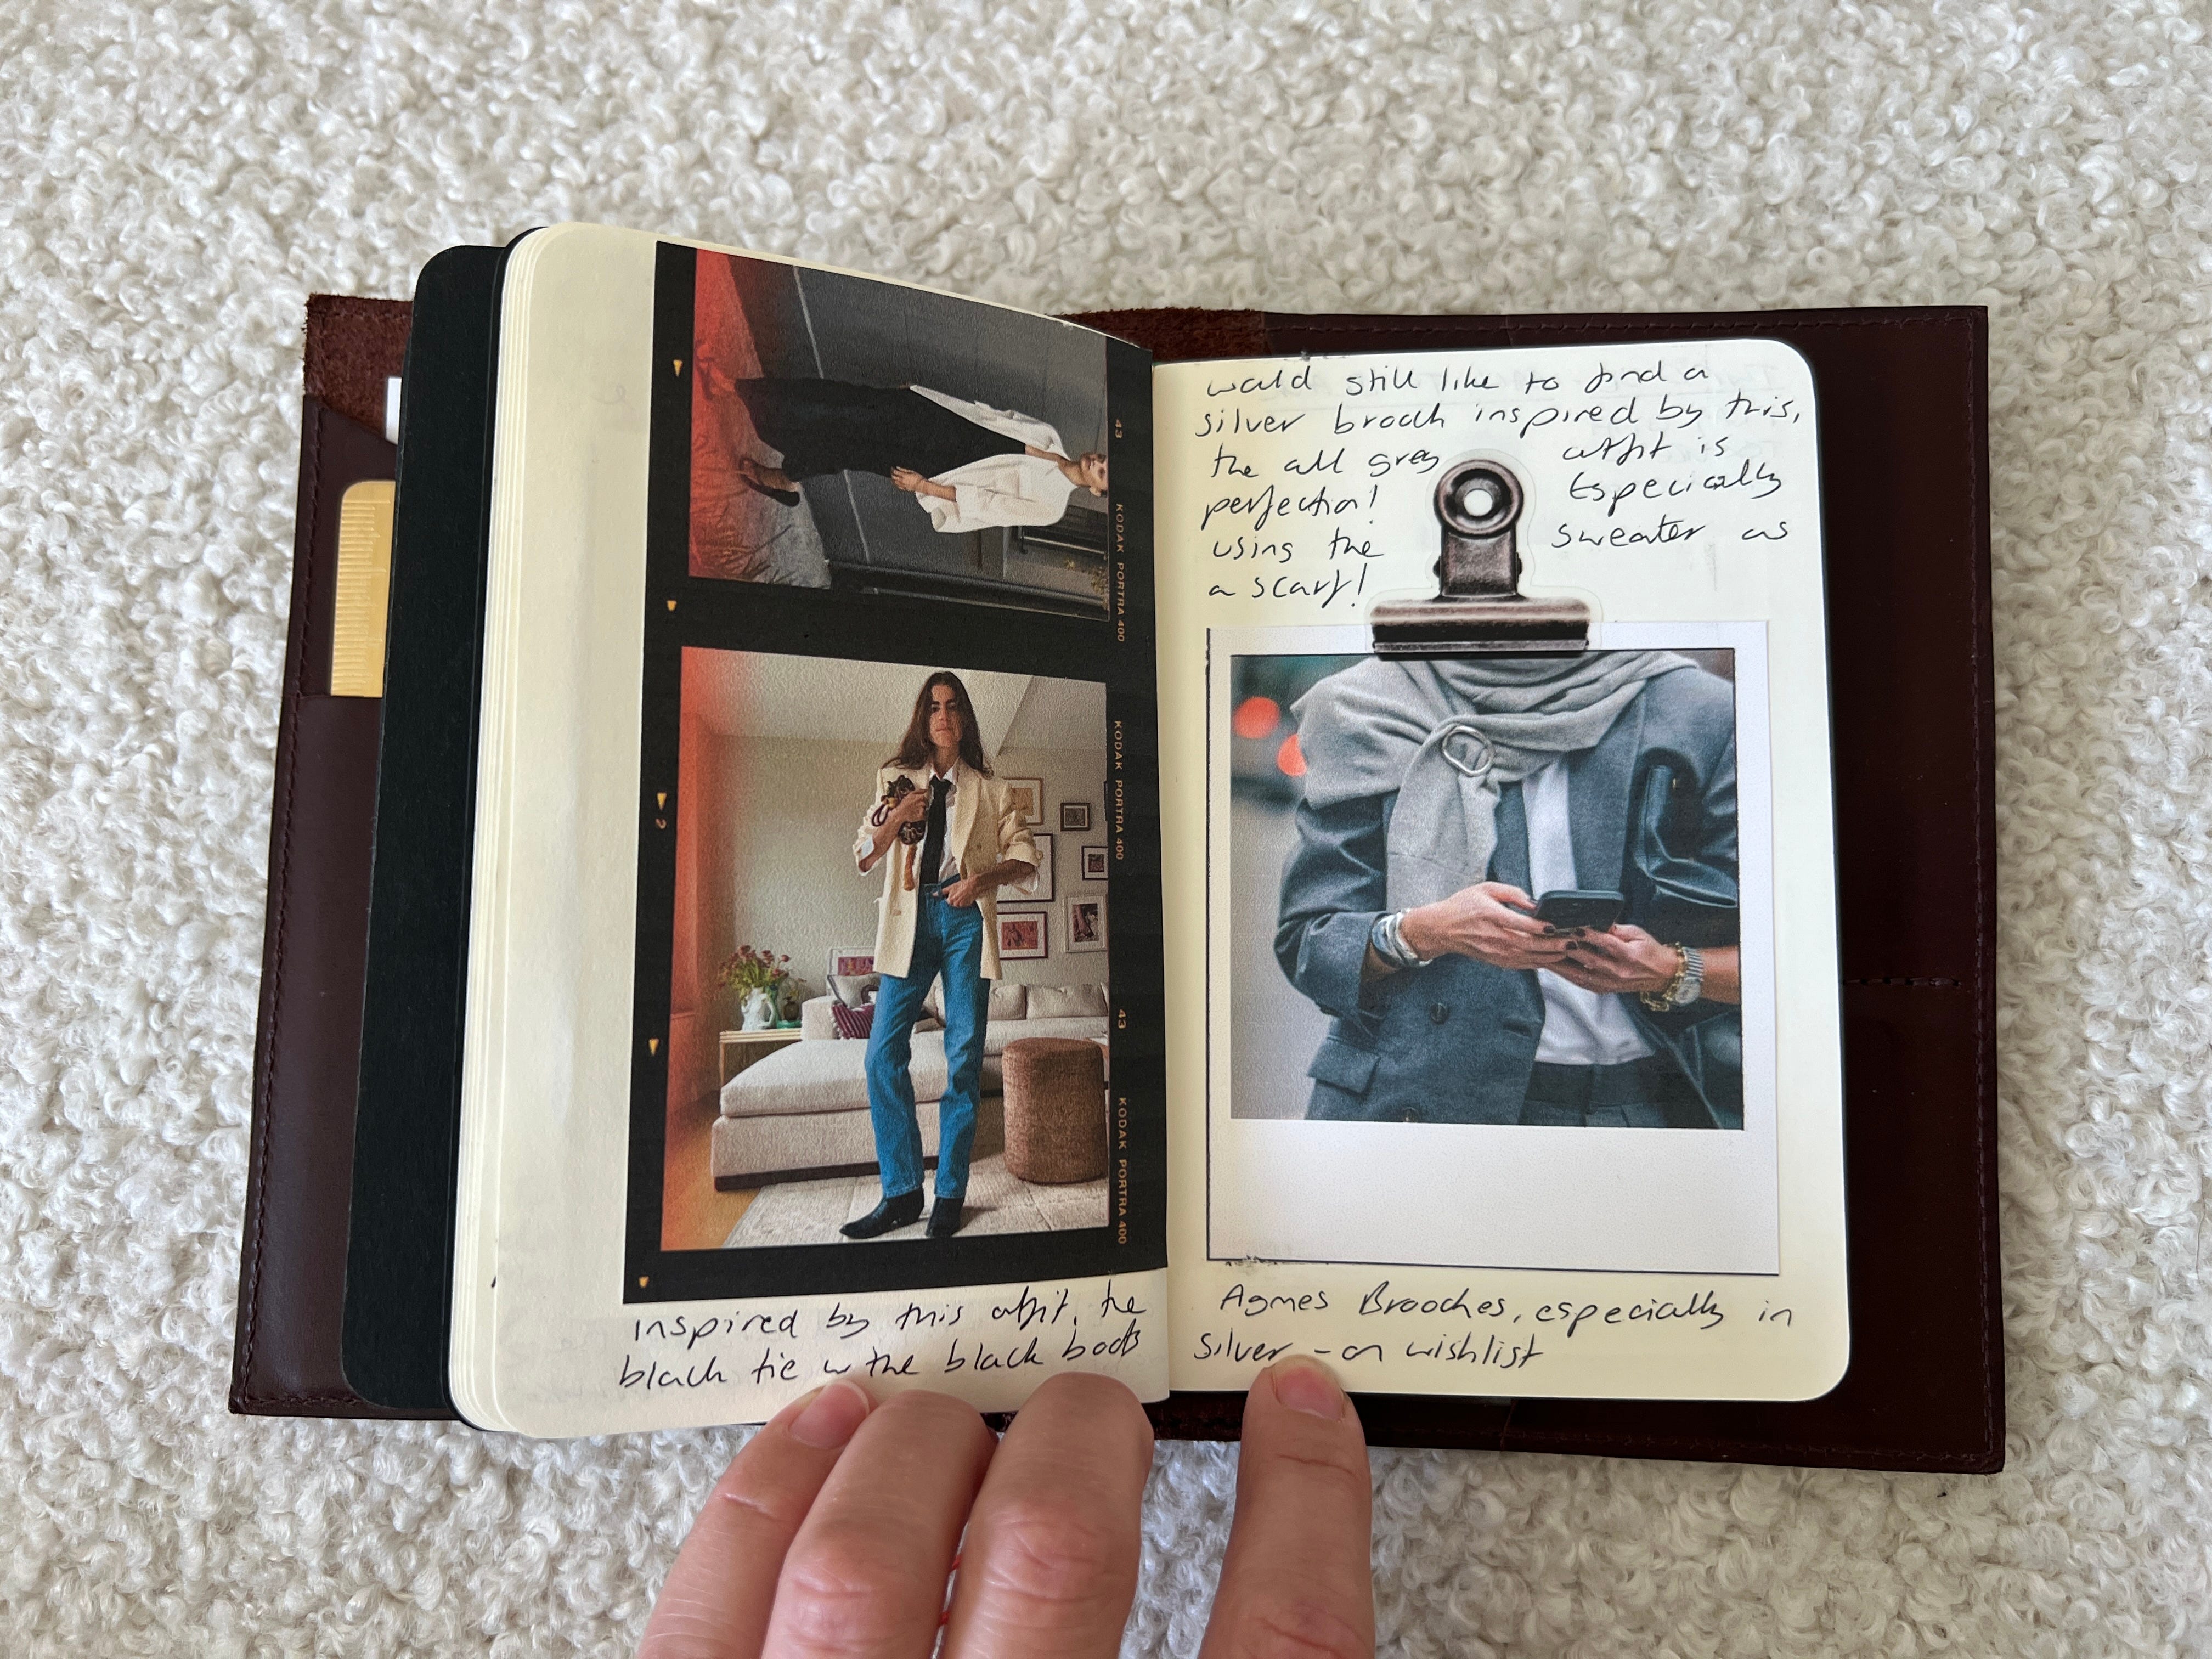 43
KODAK PORTRA 400
KODAK PORTRA 400
2
43
KODAK PORTRA 400
inspired by this outfit, the
black tie w the black boots
would still like to find a
silver brooch inspired by this,
the all grey outfit is
perfection! Especially
using the sweater as
a scarf!
Agmes Brooches, especially in
silver - on wishlist